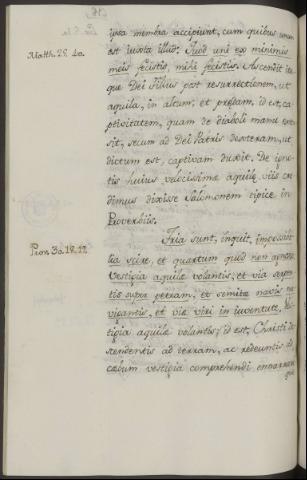 ipsa membra accipiunt, cum quibus unum
Matth. 25. 40.
est iuxta illud: Quod uni ex minimis
meis fecistis, mihi fecistis. Ascendit ita
que Dei Filius post resurrectionem, ut
aquila, in altum, et predam, id est, ca
ptivitatem, quam de diaboli manu extor
sit, secum ad Dei Patris dexteram, ut
dictum est, captivam duxit. De igno
tis huius velocissimæ aquilæ viis cre
dimus dixisse Salomonem tipice in
Proverbiis.
Prov. 30. 18. 19.
Tria sunt, inquit, impossibi
lia scire, et quartum quod non agnosco
Vestigia aquilæ volantis, et via serpen
tis super petram, et semitæ navis na
vigantis, et viæ viri in iuventute. Ves
tigia aquilæ volantis, id est, Christi de
scendentis ad terram, ac redeuntis ad
cælum vestigia comprehendi enarrari
que